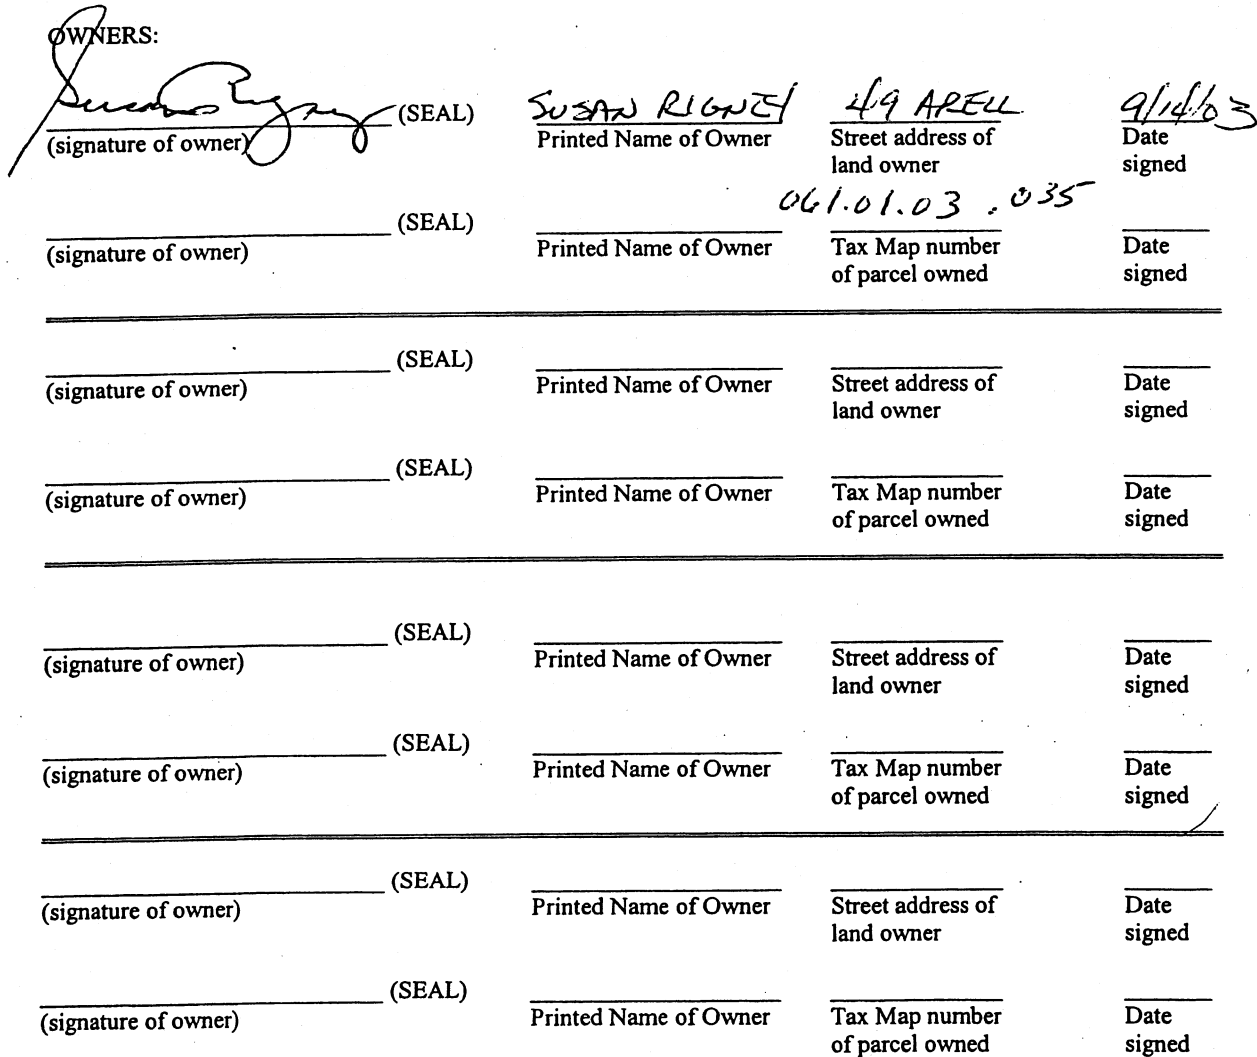 OWNERS:
Susan Rigney (SEAL) SUSAN RIGNEY 49 ARELL 9/14/03
(signature of owner) Printed Name of Owner Street address of Date
land owner signed
061.01.03.035
(SEAL)
(signature of owner) Printed Name of Owner Tax Map number Date
of parcel owned signed
(SEAL)
(signature of owner) Printed Name of Owner Street address of Date
land owner signed
(SEAL)
(signature of owner) Printed Name of Owner Tax Map number Date
of parcel owned signed
(SEAL)
(signature of owner) Printed Name of Owner Street address of Date
land owner signed
(SEAL)
(signature of owner) Printed Name of Owner Tax Map number Date
of parcel owned signed
(SEAL)
(signature of owner) Printed Name of Owner Street address of Date
land owner signed
(SEAL)
(signature of owner) Printed Name of Owner Tax Map number Date
of parcel owned signed